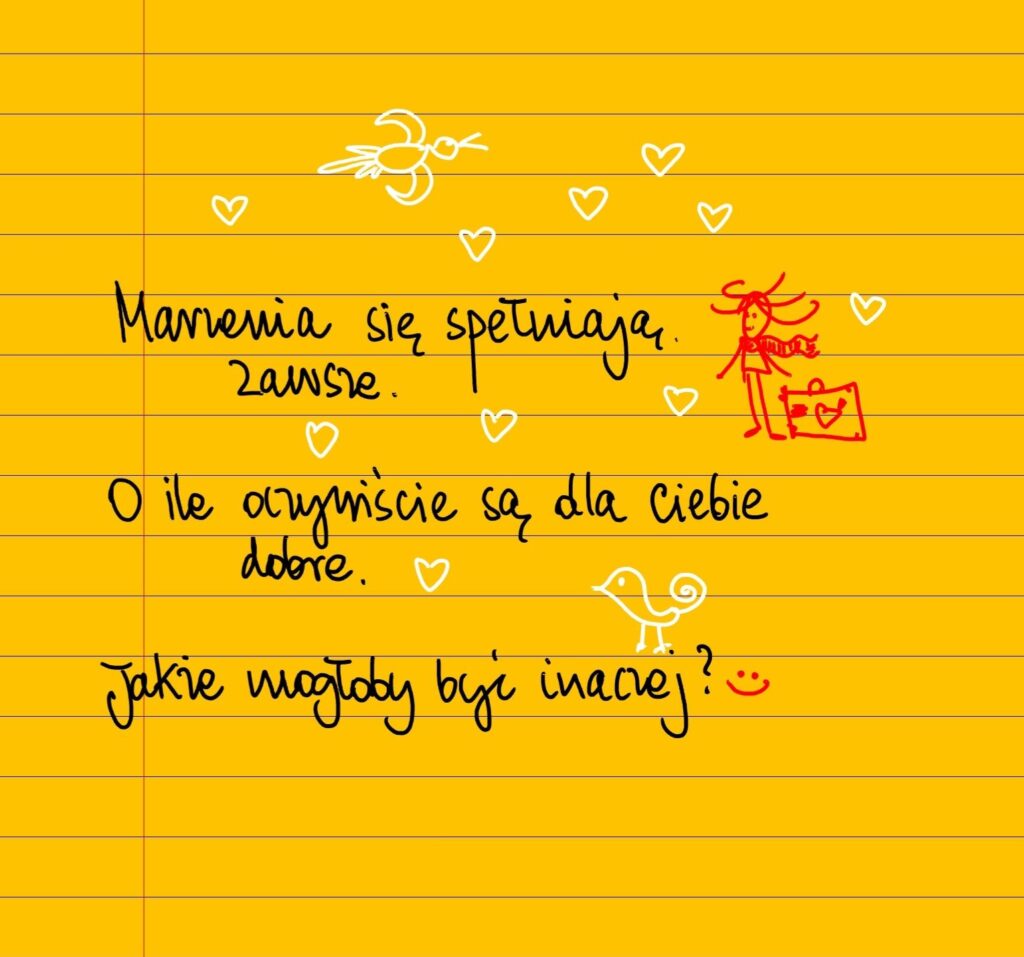 Marzenia się spełniają.
Zawsze.
O ile oczywiście są dla Ciebie
dobre.
Jakże mogłoby być inaczej?